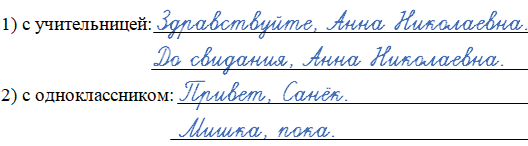 1) с учительницей: Здравствуйте, Анна Николаевна.
До свидания, Анна Николаевна.
2) с одноклассником: Привет, Санёк.
Мишка, пока.